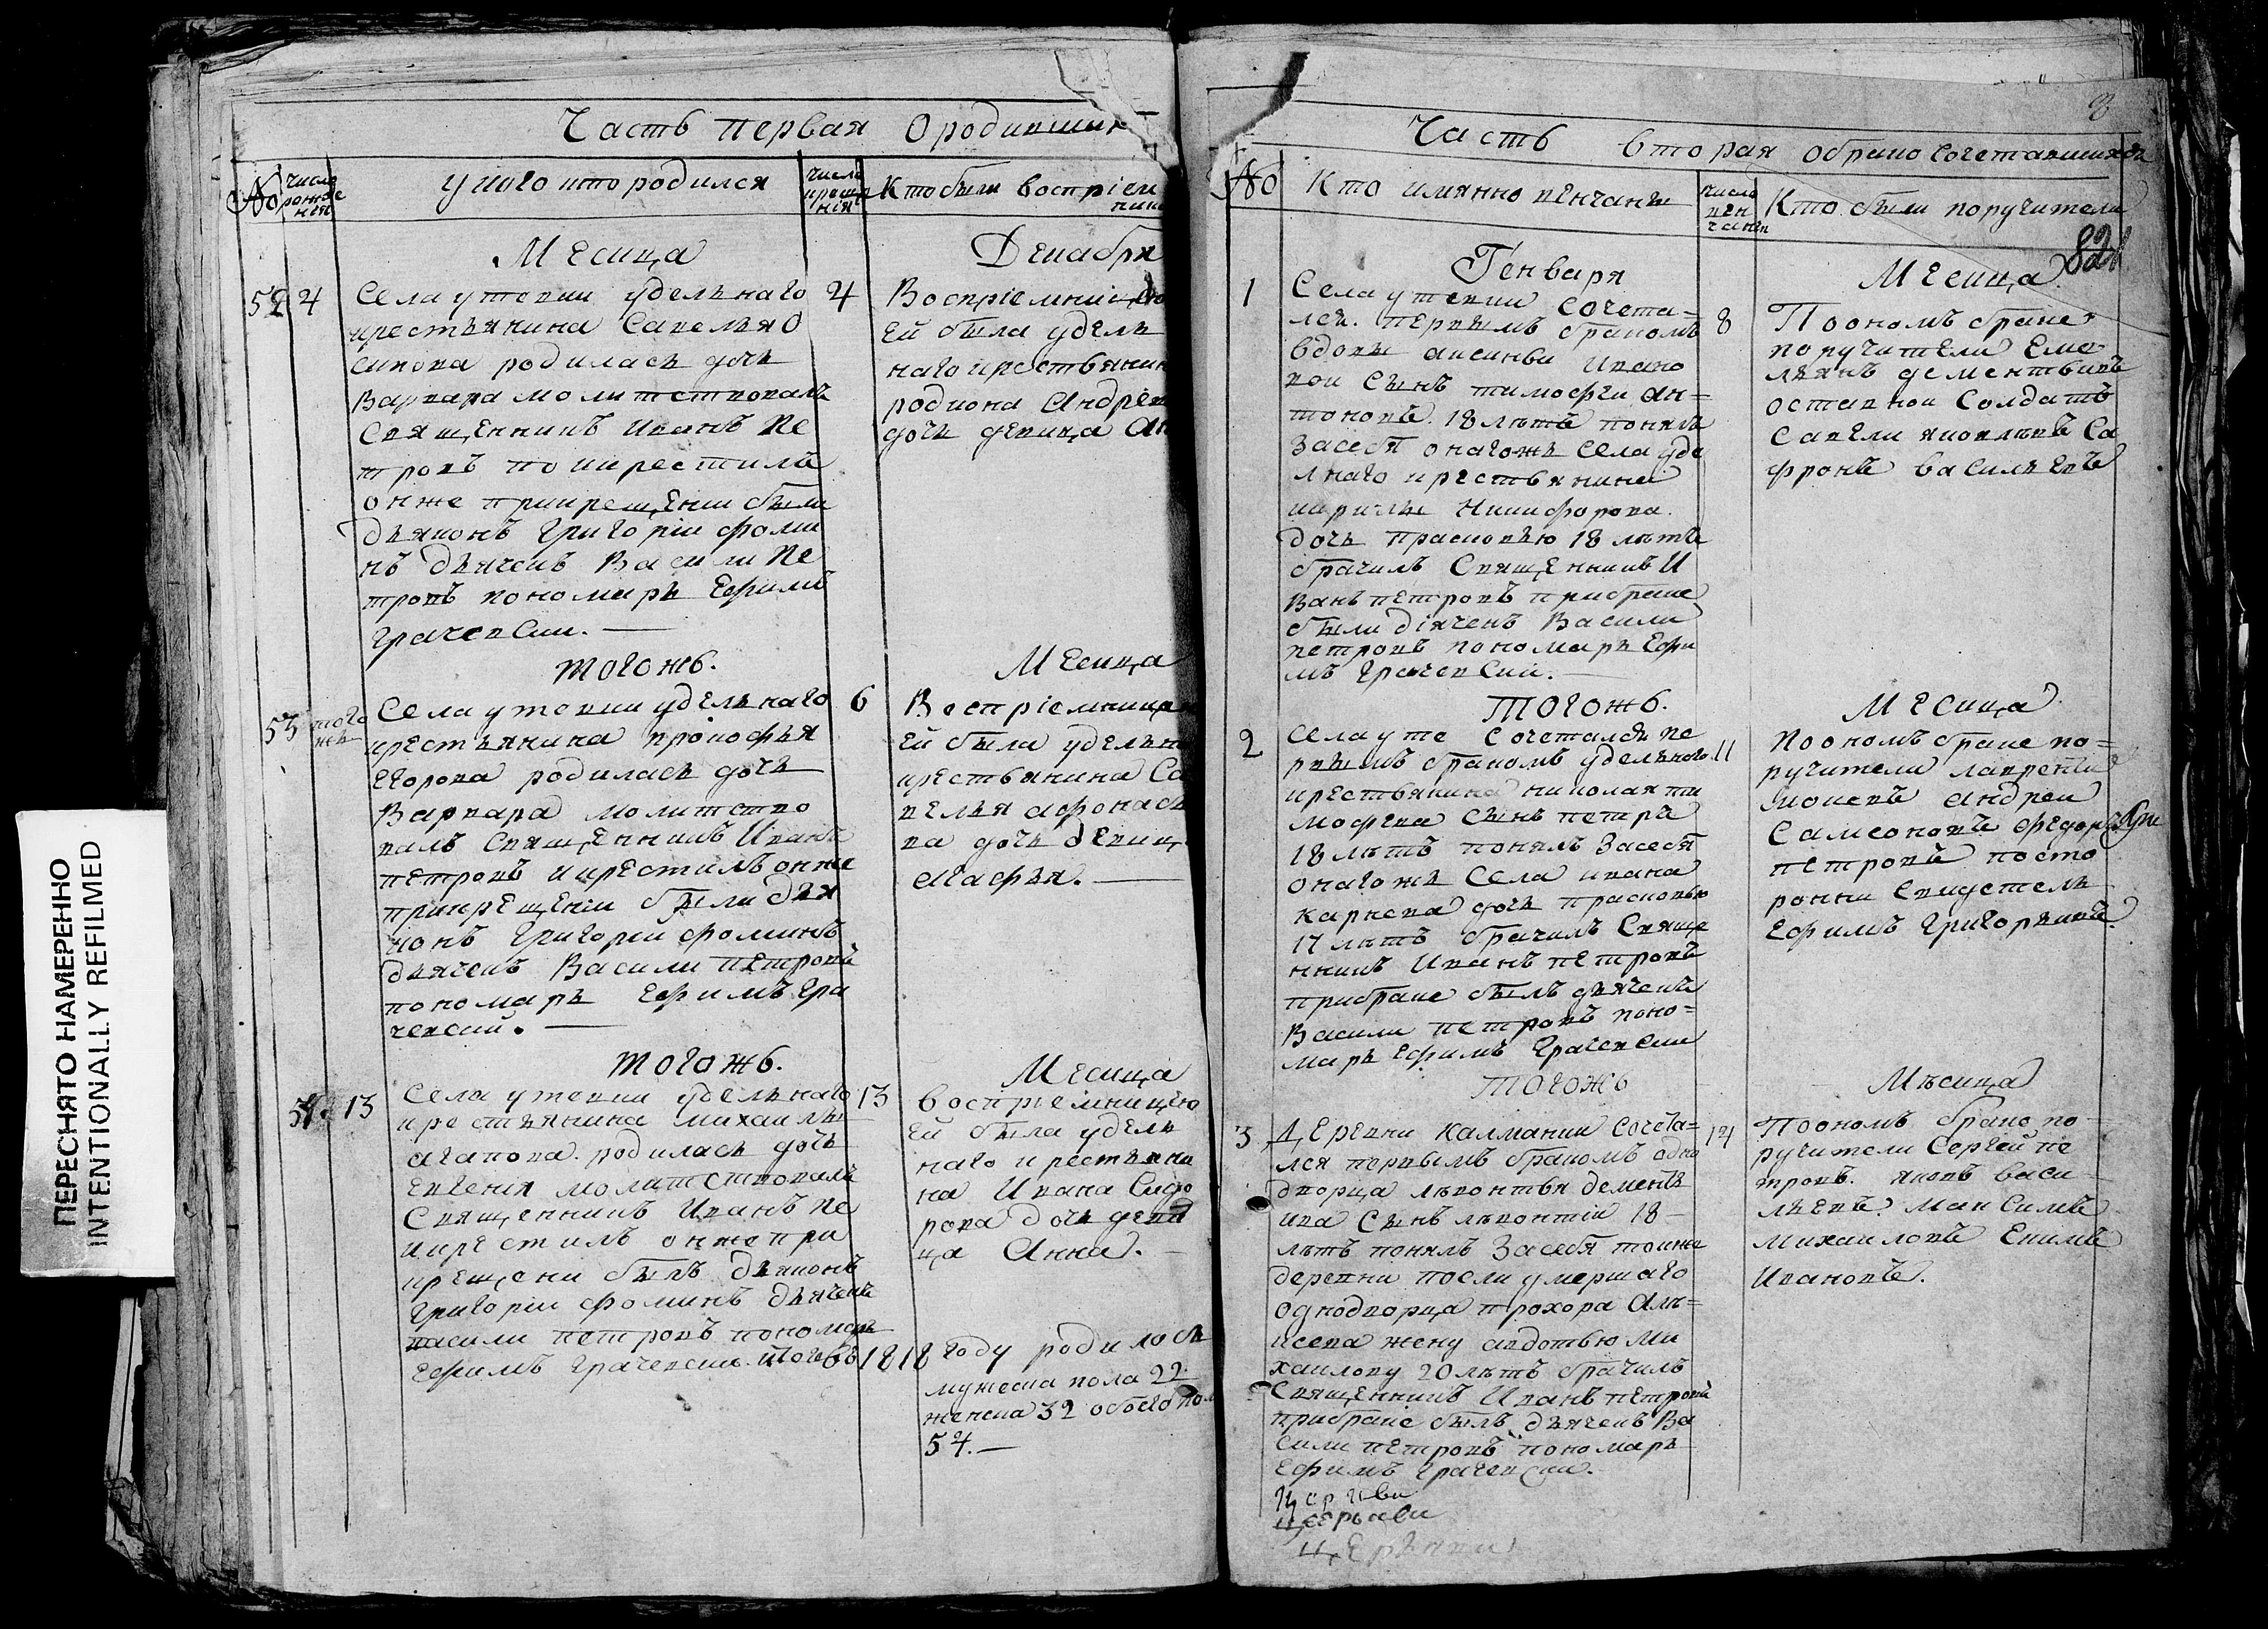 Часть первая О родивших
№
число рожде нія
у кого кто родился
число креще нія
Кто были воспріем ники
Месица
Декабря
52 4
Села утевки удельнаго
крестьянина Савелья О
сипова родилась дочь
Варвара молитствовалъ
Священникъ Иванъ Пе
тровъ по и крестилъ
онже прикрещении были
дьяконъ Григоріи Фоми
нъ дьячекъ Васили Пе
тровъ пономарь Ефимъ
Грачевски.
4
Воспріемницею
ей была удель
наго крестьянин
родиона Андрев
дочь девица Ан
тогожъ.
Месица
53 того жъ
Села утевки удельнаго
крестьянина прокофья
Егорова родилась дочь
Варвара молитство
валъ Священникъ Иванъ
петровъ и крестилъ онже
прикрещеніи были дья
конъ Григореи Фоминъ
дьячекъ Васили петровъ
пономарь Ефимъ Гра
чевский.
6
Воспріемнице
ей была удельн
крестьянина Са
велья афонась
ва дочь девиц
агафья.
тогожъ.
Месица
54 13
Села утевки удельнаго
крестьянина михаилы
агапова. родилась дочь
Евгенія молитствовалъ
Священникъ Иванъ Пе
и крестилъ онже при
крещени былъ дьяконъ
Григоріи Фоминъ дьячекъ
васили петровъ пономарь
Ефимъ Грачевски. итого въ 1818 году родилось
13
воспріемницею
ей была удель
наго крестьяни
на Ивана Сидо
рова дочь деви
ца Анна.
мужеска пола 22
женска 32 обоего пол
54.
Часть вторая о брако сочетавшихся
№
Кто имянно венчаны
число вен чанія
Кто были поручители
821
Генваря
Месица
1
Села утевки сочета=
лся. первымъ бракомъ
вдовы аксиньи Ивано
вои Сынъ тимофеи ан=
тоновъ. 18 лѣтъ понялъ
засебя онагожъ села уде
лнаго крестьянина
кирилы Никифорова.
дочь прасковью 18 лѣтъ
брачилъ Священникъ И
ванъ петровъ прибраке
были діячекъ Васили
петровъ пономарь Ефи
мъ Грачевский.
8
Поономъ браке
поручители Еме
льянъ дементьивъ
оставнои Солдатъ
Савели яковлевъ Са
фронъ васильевъ
тогожъ.
Месица
2
Села уте сочетался пе
рвымъ бракомъ удельнаго
крестьянина николая ти
мофева сынъ петръ
18 лѣтъ понялъ засебя
онаго жъ села ивана
карнева дочь прасковью
17 лѣтъ брачилъ Свяще
нникъ Иванъ петровъ
прибраке былъ дьячекъ
Васили петровъ поно=
марь Ефимъ Грачевски
11
поономъ браке по=
ручители лаврентей
андреи
Самсоновъ Федоръ
петровъ посто
ронни Свидетель
Ефимъ Григорьивъ.
тогожъ
Мѣсица
3
Деревни Калманки сочета=
лся первымъ бракомъ одно
дворца лѣвонтья дементь
ива сынъ лѣвонтіи 18
лѣтъ понялъ засебя тоиже
деревни посли умершаго
однодворца прохора алѣ=
ксева жену авдотью ми
хаилову 20 лѣтъ брачилъ
Священникъ Иванъ петровъ
прибраке былъ дьячекъ Ва
сили петровъ пономарь
Ефимъ Грачевски.
14
Поономъ браке по
ручители Сергей пе
тровъ. яковъ васи
льевъ. Максимъ
михаиловъ Екимъ
Ивановъ.
ПЕРЕСНЯТО НАМЕРЕННО
INTENTIONALLY REFILMED